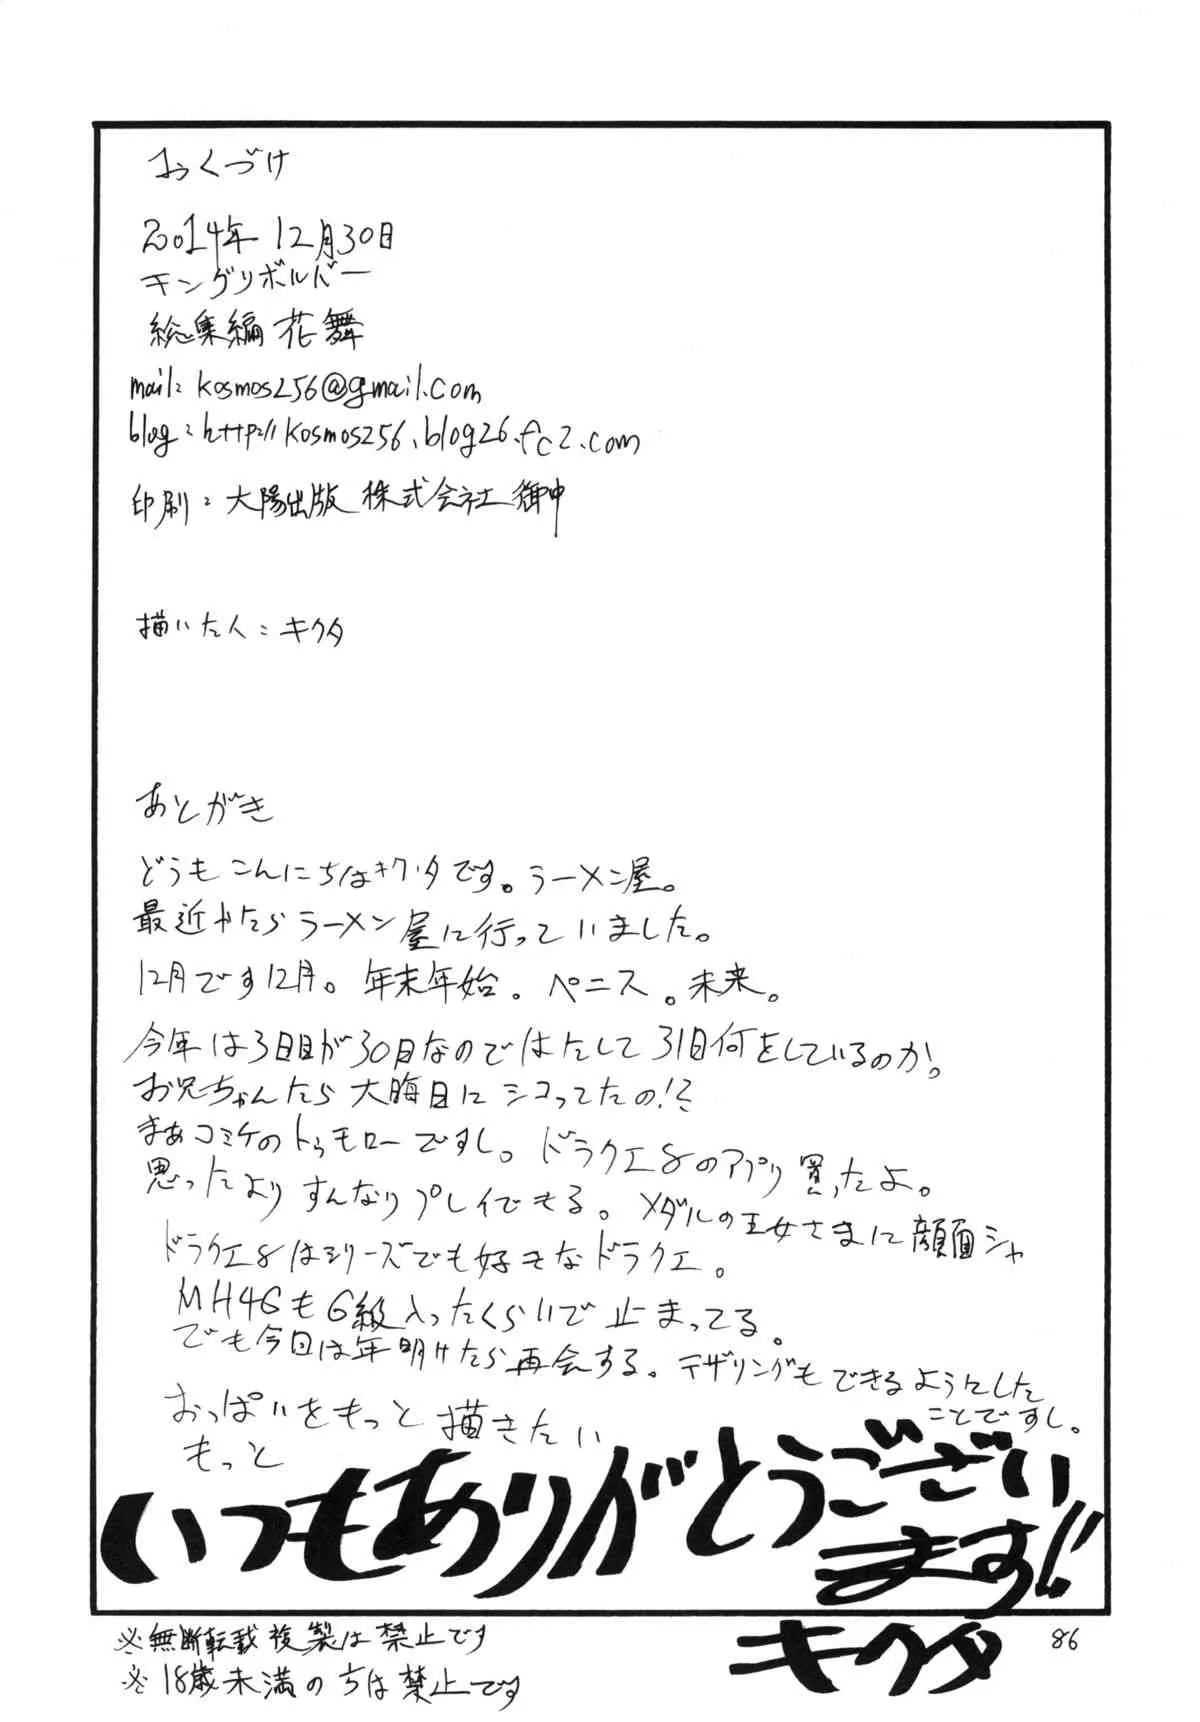 おくづけ
2014年 12月30日
キングリボルバー
総集編 花舞
mail: kosmos256@gmail.com
blog: http://kosmos256.blog26.fc2.com
印刷: 大陽出版 株式会社 御中
描いた人: キクタ
あとがき
どうもこんにちはキクタです。ラーメン屋。
最近やたらラーメン屋に行っていました。
12月です12月。年末年始。ペニス。未来。
今年は3日目が30日なのではたして31日何をしているのか。
お兄ちゃんたら大晦日にシコってたの!?
まあコミケのトゥモローですし。ドラクエ8のアプリ買ったよ。
思ったよりすんなりプレイできる。メダルの王女さまに顔面シャ
ドラクエ8はシリーズでも好きなドラクエ。
MH4GもG級入ったくらいで止まってる。
でも今回は年明けたら再会する。テザリングもできるようにした
ことですし。
おっぱいをもっと描きたい
もっと
いつもありがとうござい
ます!!
キクタ
86
※無断転載複製は禁止です
※18歳未満のちは禁止です